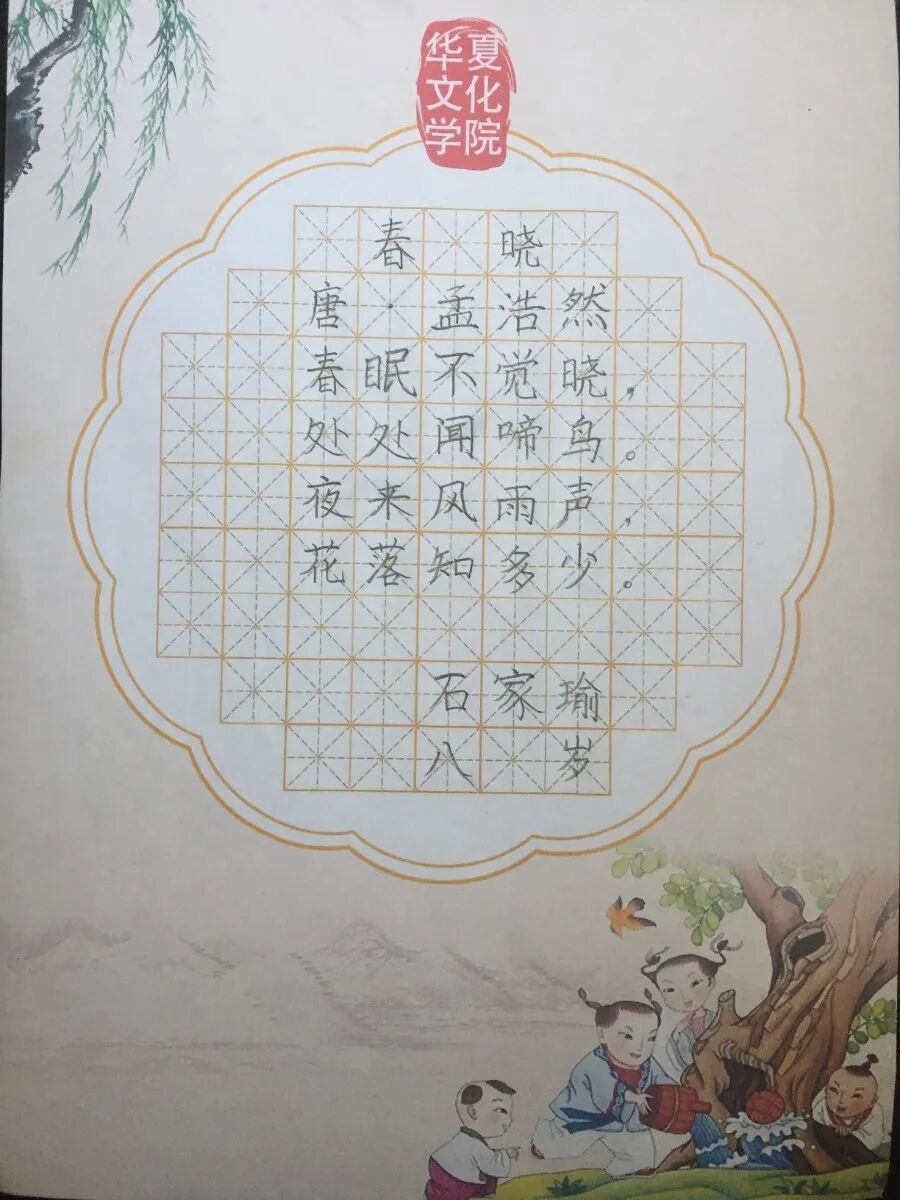 华夏
文化
学院
春晓
唐·孟浩然
春眠不觉晓，
处处闻啼鸟。
夜来风雨声，
花落知多少。
石家瑜
八岁